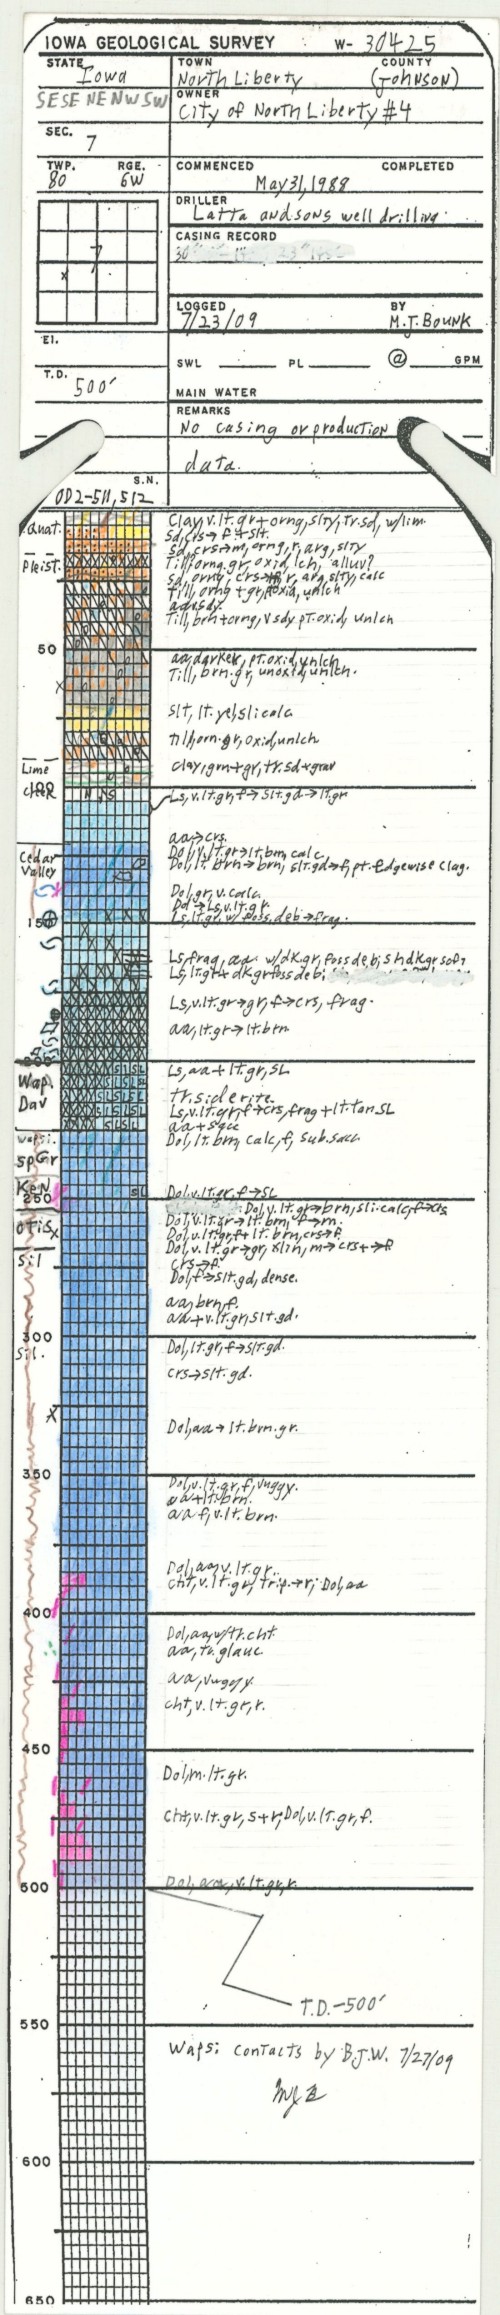 IOWA GEOLOGICAL SURVEY W- 30425
STATE Iowa
SESE NE NW SW
TOWN COUNTY
North Liberty (JOHNSON)
OWNER
City of North Liberty #4
SEC. 7
TWP. RGE.
80 6W
COMMENCED COMPLETED
May 31, 1988
DRILLER
Latta and sons well drilling
CASING RECORD
30"
7
x
LOGGED BY
7/23/09 M.J. BOUNK
El.
SWL PL @ GPM
T.D. 500'
MAIN WATER
REMARKS
No casing or production
data.
S.N.
OD2-511,512
Quat. Clay, v.lt.gr+orng, slty, tr.sd, w/lim
sd, crs→f+slt.
sd, crs→m, orng, r, arg, slty
Pleist. Till, orng.gr, oxid, lch, alluv?
sd, orng, crs→ r, arg, slty, calc
Till, orng+gr, oxid, unlch
aa, sdy
Till, brn+orng, v sdy pt.oxid, unlch
50
aa, darker, pt.oxid, unlch
Till, brn.gr, unoxid, unlch.
slt, lt.yel, sli calc
till, orn.gr, oxid, unlch
clay, grn+gr, tr.sd+grav
Lime
Creek
100
Ls, v.lt.gr, f→slt.gd→lt.gr
aa→crs.
Cedar
Valley
Dol, v.lt.gr→lt.brn, calc
Dol, lt.brn→brn, slt.gd→f, pt.Edgewise Clag.
Dol, gr, v.calc.
Dol→Ls, v.lt.gr.
150
Ls, lt.gr, w/foss, deb→frag.
Ls, frag, aa w/dk.gr, foss deb; sh dkgr soft
Ls, lt.gr+dkgr foss deb;
Ls, v.lt.gr→gr, f→crs, frag.
aa, lt.gr→lt.brn
200
Wap.
Dav
Ls, aa+lt.gr, SL
tr.siderite.
Ls, v.lt.gr, f→crs, frag+lt.tan SL
Wapsi.
SpGr
Dol, lt.brn, calc, f, sub.sacc.
KeN
250
Dol, v.lt.gr, f→SL
Dol, v.lt.gr→brn, sli.calc, f→crs
OTIS
Dol, v.lt.gr→lt.brn, f→m.
Dol, v.lt.gr, f+lt.brn, crs→f.
Sil
Dol, v.lt.gr→gr, xln, m→crs+→f
crs→f.
Dol, f→slt.gd, dense.
aa, brn, f.
aa+v.lt.gr, slt.gd.
300
Sil.
Dol, lt.gr, f→slt.gd.
crs→slt.gd.
Dol, aa→lt.brn.gr.
350
Dol, v.lt.gr, f, vuggy.
aa+lt.brn.
aa f, v.lt.brn.
Dol, aa, v.lt.gr.
cht, v.lt.gr, trip.→r; Dol, aa
400
Dol, aa, w/tr.cht.
aa, tr.glauc
aa, vuggy.
cht, v.lt.gr, r.
450
Dol, m.lt.gr.
Cht, v.lt.gr, s+r; Dol, v.lt.gr, f.
500
Dol, aa, v.lt.gr, r.
T.D.-500'
550
Wapsi contacts by B.J.W. 7/27/09
MJB
600
650